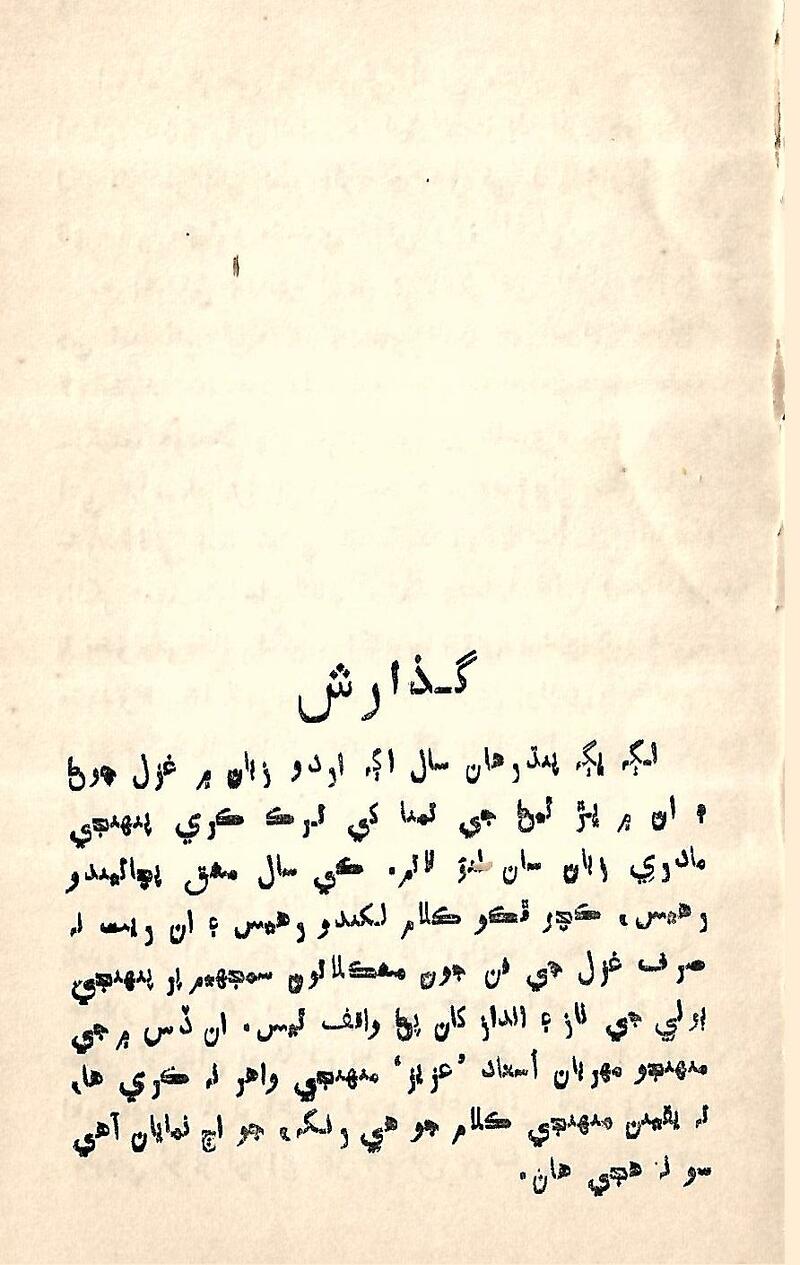 گذارش
لڳ ڀڳ پندرهان سال اڳ اردو زبان ۾ غزل چوڻ
۽ ان ۾ پڙ ٿيڻ جي تمنا کي ترڪ ڪري پنهنجي
مادري زبان سان لنؤ لاتم. ڪي سال مشق پچائيندو
رهيس، ڪچو ڦڪو ڪلام لکندو رهيس ۽ ان ريت نہ
صرف غزل جي فن جون مشڪلاتون سمجهيم پر پنهنجي
ٻولي جي ناز ۽ انداز کان پڻ واقف ٿيس. ان ڏس ۾ جي
منهنجو مهربان اُستاد ’عزيز‘ منهنجي واهر نہ ڪري ها،
تہ يقينن منهنجي ڪلام جو هي رنگ، جو اڄ نمايان آهي
سو نہ هجي هان.